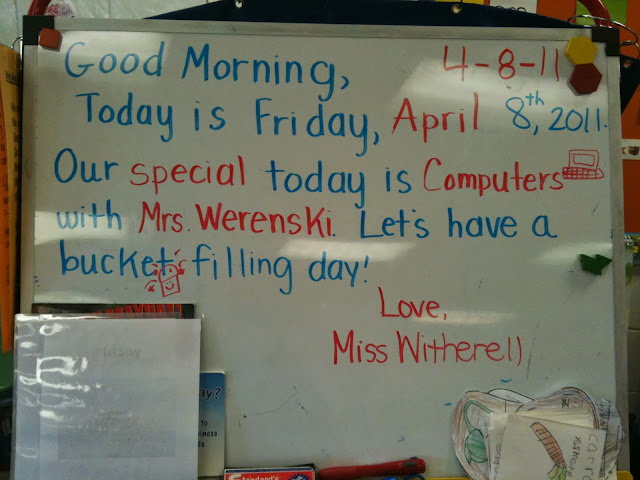 Good Morning, 4-8-11
Today is Friday, April 8th, 2011.
Our special today is Computers
with Mrs. Werenski. Let's have a
bucket filling day!
Love,
Miss Witherell